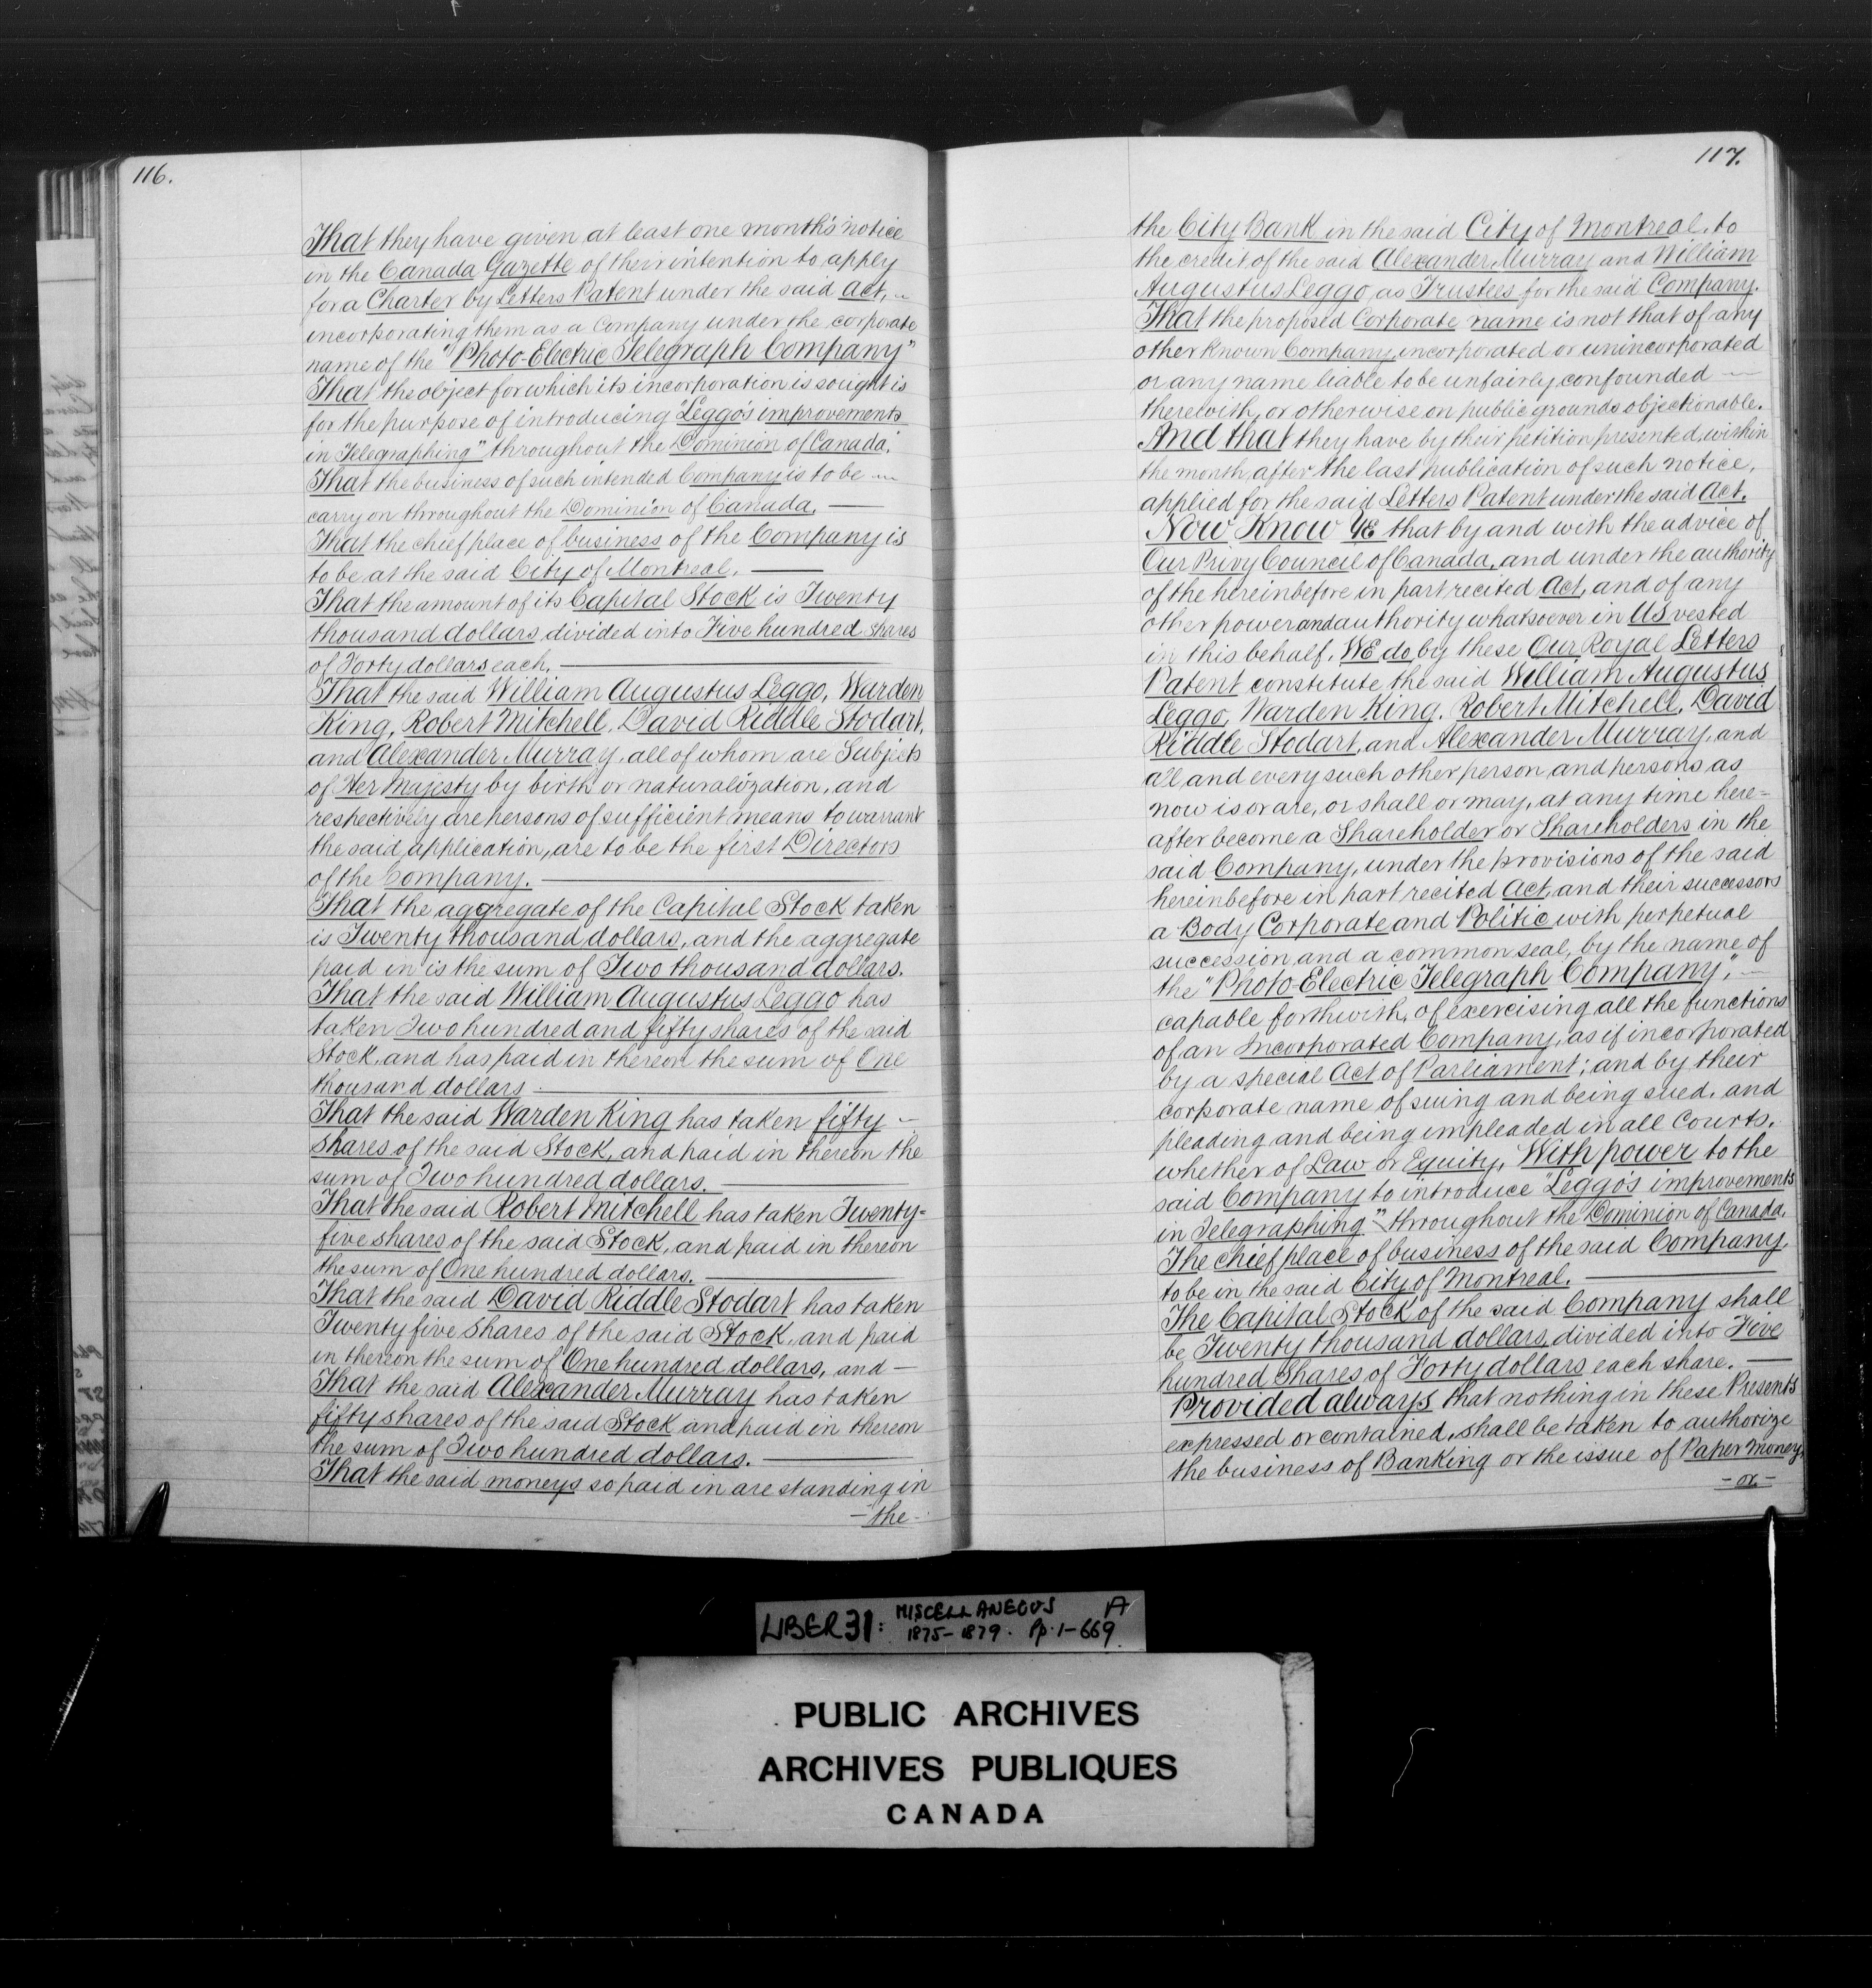 116.
That they have given at least one month's notice
in the Canada Gazette of their intention to apply
for a Charter by Letters Patent under the said Act,
incorporating them as a Company under the corporate
name of the "Photo-Electric Telegraph Company"
That the object for which its incorporation is sought is
for the purpose of introducing "Leggo's improvements
in Telegraphing" throughout the Dominion of Canada.
That the business of such intended Company is to be
carry on throughout the Dominion of Canada. —
That the chief place of business of the Company is
to be at the said City of Montreal. —
That the amount of its Capital Stock is Twenty
thousand dollars divided into Five hundred shares
of Forty dollars each. —
That the said William Augustus Leggo, Warden
King, Robert Mitchell, David Riddle Stodart,
and Alexander Murray, all of whom are Subjects
of Her Majesty by birth or naturalization, and
respectively are persons of sufficient means to warrant
the said application, are to be the first Directors
of the Company. —
That the aggregate of the Capital Stock taken
is Twenty thousand dollars, and the aggregate
paid in is the sum of Two thousand dollars.
That the said William Augustus Leggo has
taken Two hundred and fifty shares of the said
Stock, and has paid in thereon the sum of One
thousand dollars. —
That the said Warden King has taken fifty –
shares of the said Stock, and paid in thereon the
sum of Two hundred dollars. —
That the said Robert Mitchell has taken Twenty=
five shares of the said Stock, and paid in thereon
the sum of One hundred dollars. —
That the said David Riddle Stodart has taken
Twenty five Shares of the said Stock, and paid
in thereon the sum of One hundred dollars, and —
That the said Alexander Murray has taken
fifty shares of the said Stock and paid in thereon
the sum of Two hundred dollars. —
That the said moneys so paid in are standing in
– the –
117.
the City Bank in the said City of Montreal, to
the credit of the said Alexander Murray and William
Augustus Leggo, as Trustees for the said Company.
That the proposed Corporate name is not that of any
other known Company, incorporated or unincorporated
or any name liable to be unfairly confounded —
therewith, or otherwise on public grounds objectionable.
And that they have by their petition presented, within
the month after the last publication of such notice,
applied for the said Letters Patent under the said Act.
Now Know Ye that by and with the advice of
Our Privy Council of Canada, and under the authority
of the hereinbefore in part recited Act, and of any
other power and authority whatsoever in Us vested
in this behalf. We do by these Our Royal Letters
Patent constitute the said William Augustus
Leggo, Warden King, Robert Mitchell, David
Riddle Stodart, and Alexander Murray, and
all and every such other person and persons as
now is or are, or shall or may, at any time here=
after become a Shareholder or Shareholders in the
said Company, under the provisions of the said
hereinbefore in part recited Act, and their successors
a Body Corporate and Politic with perpetual
succession and a common seal, by the name of
the "Photo-Electric Telegraph Company", —
capable forthwith, of exercising all the functions
of an Incorporated Company, as if incorporated
by a special Act of Parliament; and by their
corporate name of suing and being sued, and
pleading and being impleaded in all Courts,
whether of Law or Equity, With power to the
said Company to introduce "Leggo's improvements
in Telegraphing" throughout the Dominion of Canada.
The chief place of business of the said Company,
to be in the said City of Montreal. —
The Capital Stock of the said Company shall
be Twenty thousand dollars, divided into Five
hundred Shares of Forty dollars each share. —
Provided always that nothing in these Presents
expressed or contained, shall be taken to authorize
the business of Banking or the issue of Paper money,
– or –
LIBER 31: MISCELLANEOUS A
1875-1879. Pp. 1-669.
PUBLIC ARCHIVES
ARCHIVES PUBLIQUES
CANADA